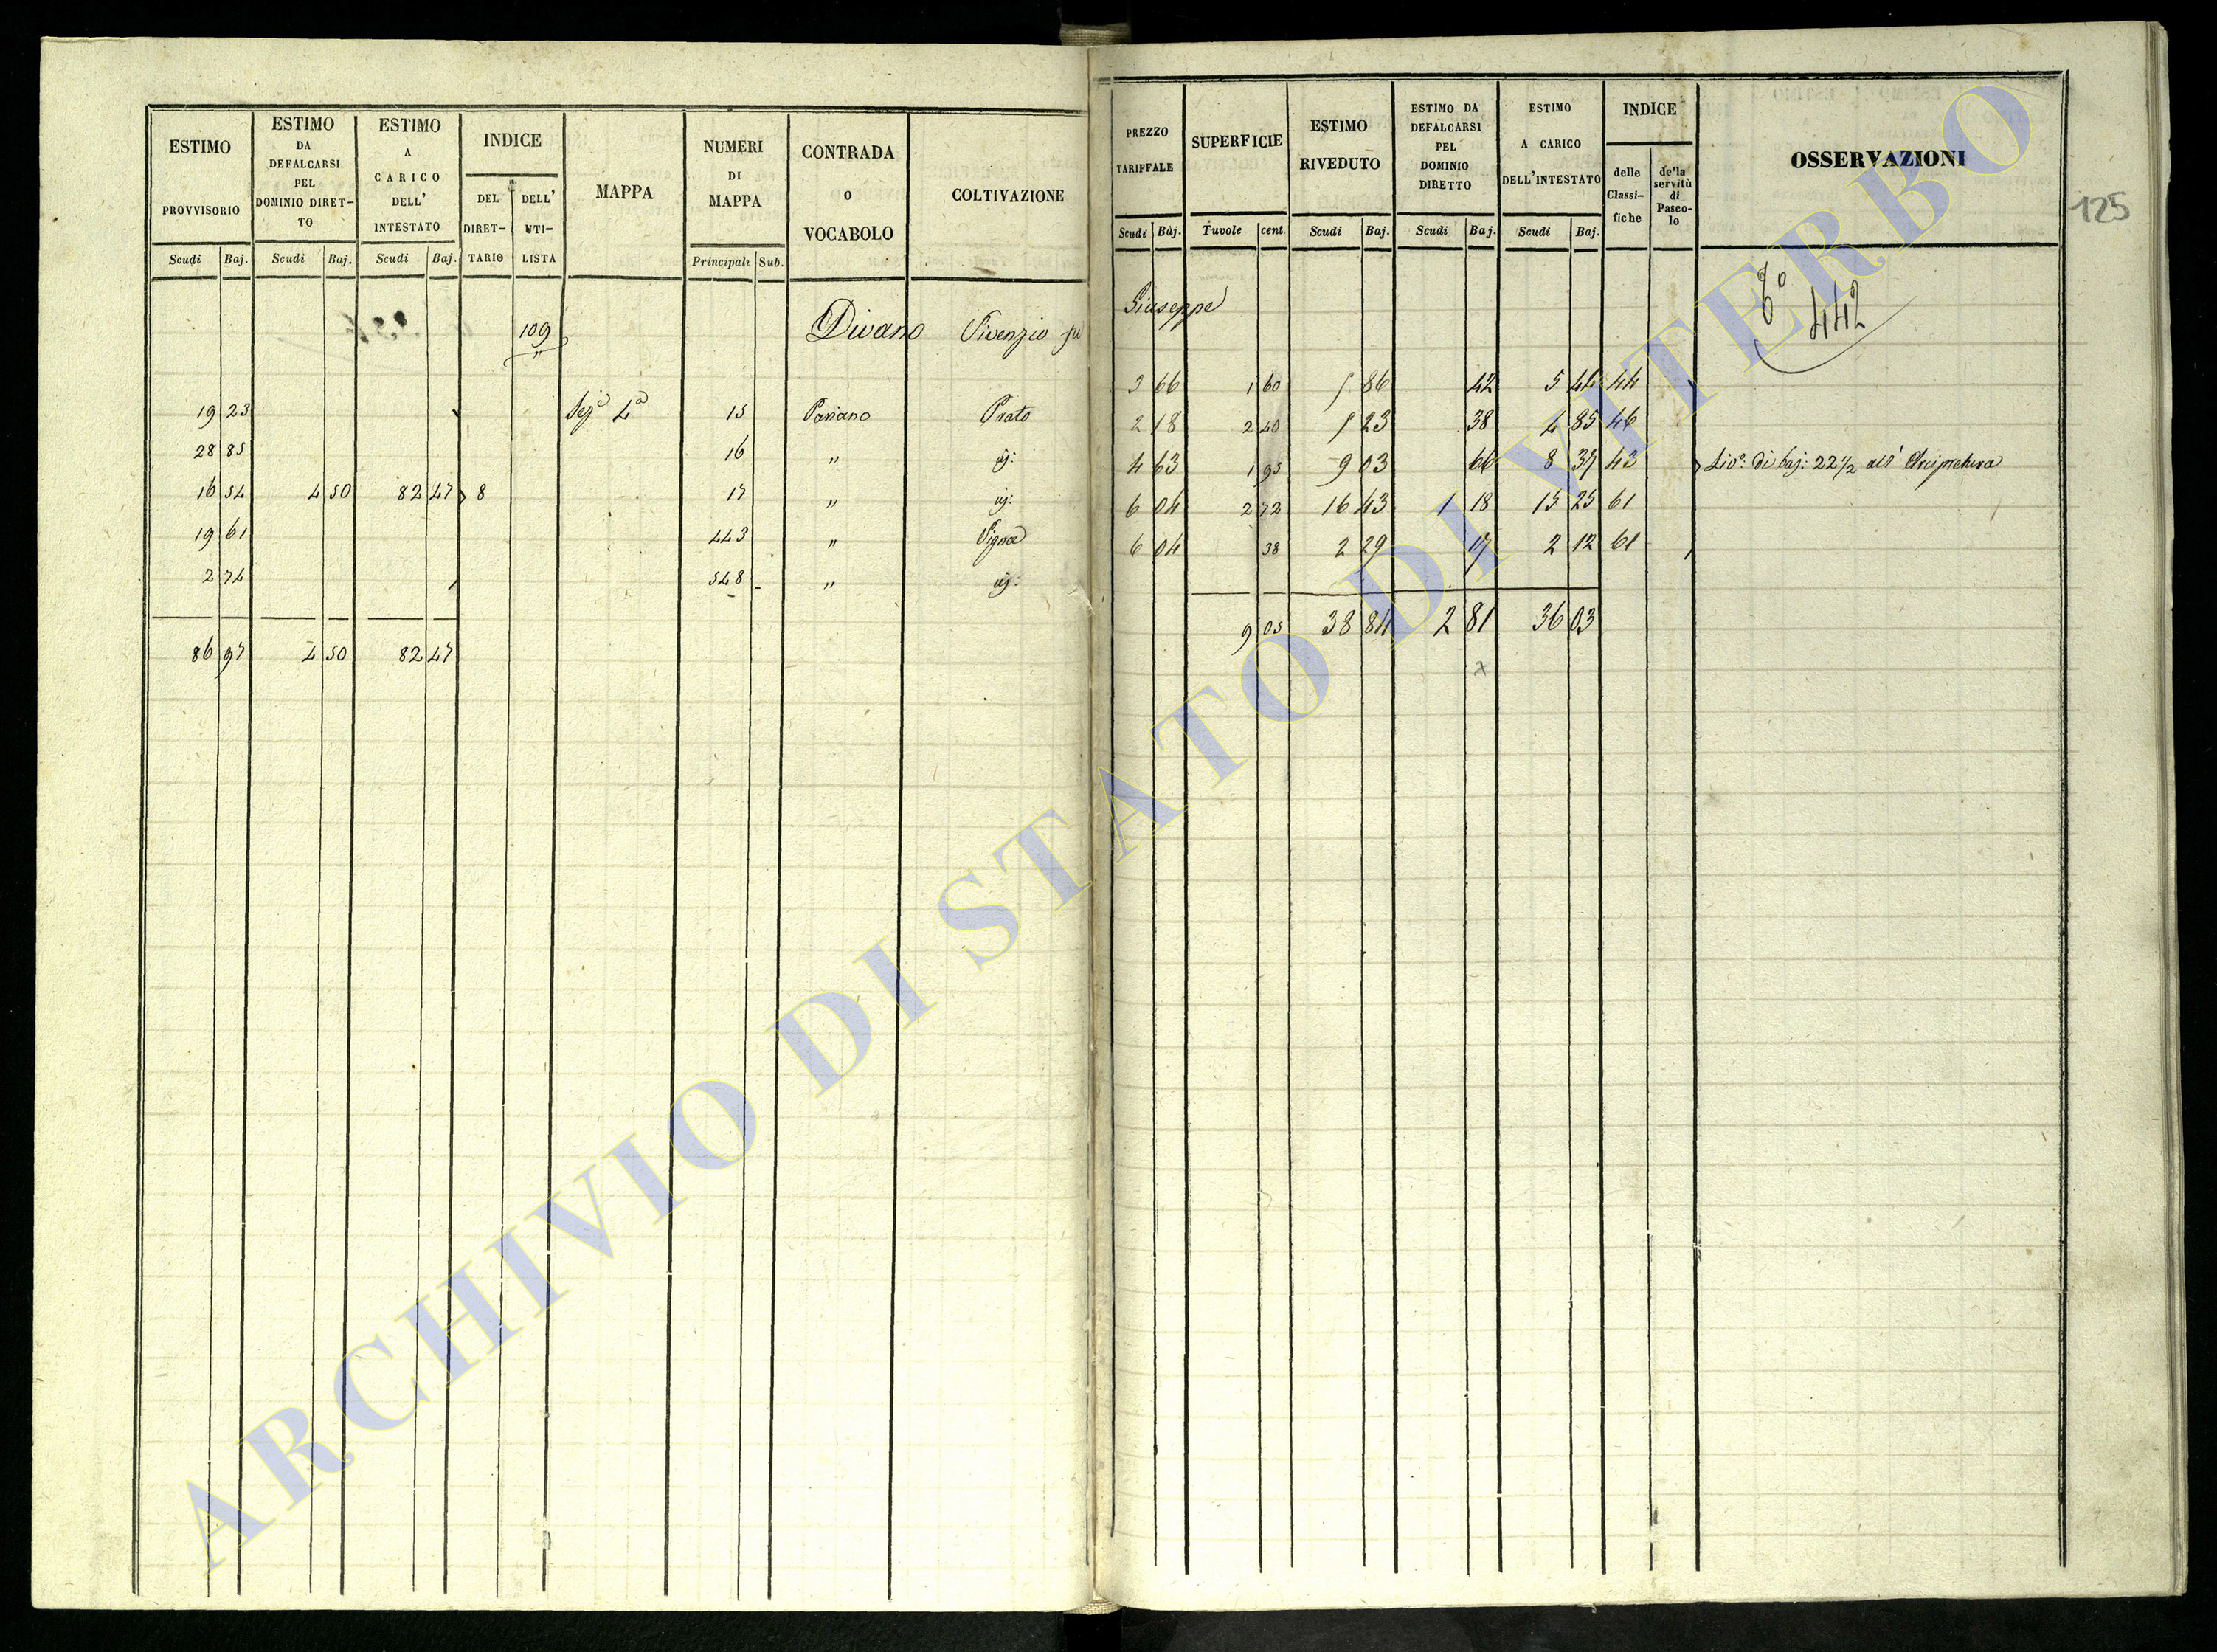 ESTIMO PROVVISORIO
ESTIMO DA DEFALCARSI PEL DOMINIO DIRET-TO
ESTIMO A CARICO DELL' INTESTATO
INDICE
DEL DIRET-TARIO
DELL' UTI-LISTA
MAPPA
NUMERI DI MAPPA
CONTRADA O VOCABOLO
COLTIVAZIONE
Scudi Baj. Scudi Baj. Scudi Baj. Principali Sub.
109 Divano Vivenzio fu
19 23 Sez.e 4a 15 Pariano Prato
28 85 16 " id:
16 54 4 50 82 47 8 17 " id:
19 61 443 " Vigna
2 74 548 " id:
86 97 4 50 82 47
PREZZO TARIFFALE
SUPERFICIE
ESTIMO RIVEDUTO
ESTIMO DA DEFALCARSI PEL DOMINIO DIRETTO
ESTIMO A CARICO DELL'INTESTATO
INDICE
delle Classi-fiche
de'la servitù di Pasco-lo
OSSERVAZIONI
Scudi Baj. Tavole cent Scudi Baj. Scudi Baj. Scudi Baj.
125
Giuseppe
442
3 66 1 60 5 86 42 5 44 44
2 18 2 40 5 23 38 4 85 46
4 63 1 95 9 03 66 8 37 43 Liv.o di baj: 22 1/2 all' Arcipretura
6 04 2 72 16 43 1 18 15 25 61
6 04 38 2 29 17 2 12 61
9 05 38 84 2 81 36 03
x
ARCHIVIO DI STATO DI VITERBO